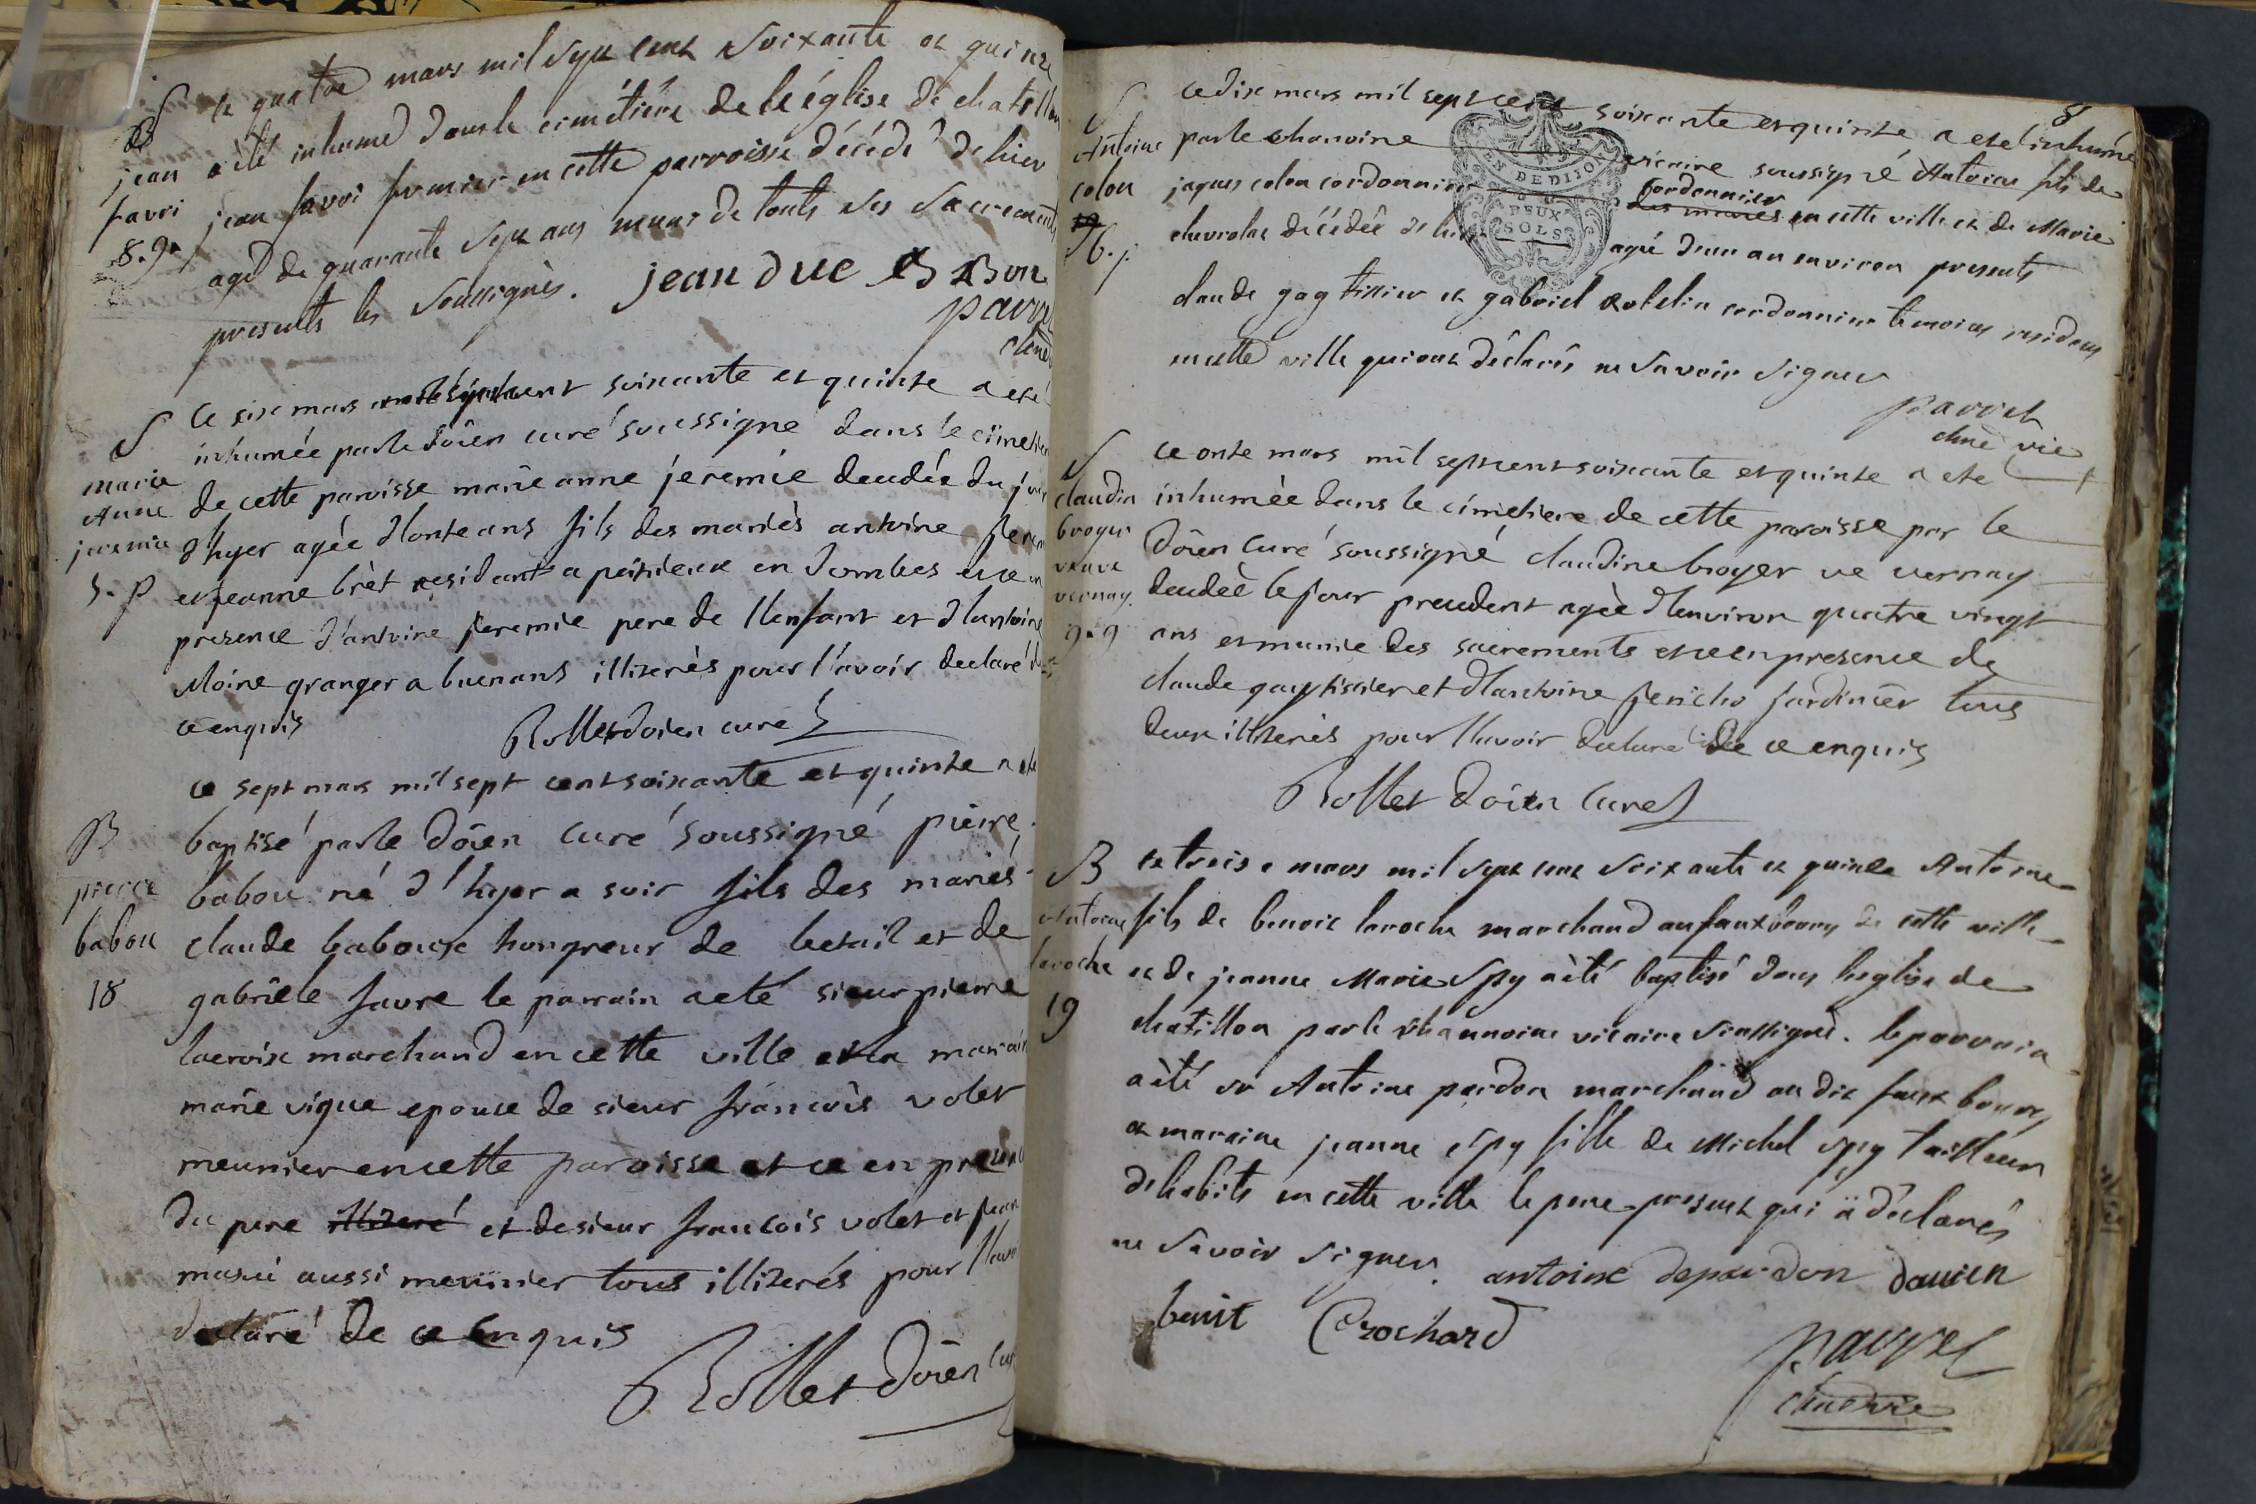 S
jean
favri
8. 9.
le quatre mars mil sept cent soixante et quinze
a été inhumé dans le cimétiére de l'église de chatillon
jean favri fermier en cette parroisse décédé d'hier
agé de quarante sept ans muni de touts ses sacrements
presents les soussignés. jean duc
parret
S
marie
Anne
jeremie
5. p
Ce six mars soixante et quinze a eté
inhumée par le doïen curé soussigne dans le cimetiere
de cette paroisse marie anne jeremie decedée du jour
d'hyer agée d'onze ans fils des mariés antoine
et jeanne brèt residants a peizieux en Dombes et ce en
presence d'antoine jeremie pere de l'enfant et d'antoine
Moine granger a buenans illiterés pour l'avoir declaré de
ce enquis
Rollet doien curé
B
pierre
babou
18
ce sept mars mil sept cent soixante et quinze a eté
baptisé par le doïen curé soussigné pierre
babou né d'hyer a soir fils des mariés
claude baboux hongreur de betail et de
gabriele favre le parrain a eté sieur pierre
lacroix marchand en cette ville et la maraine
marie vigue epouse de sieur françois volet
meunier en cette paroisse et ce en presence
du pere illiteré et de sieur francois volet et jean
masui aussi meunier tous illiterés pour l'avoir
declaré de ce enquis
Rollet doïen curé
8
S
Antoine
colon
6. p
ce dix mars mil sept cent soixante et quinze a eté inhumé
par le chanoine vicaire soussigné Antoine fils de
jaques colon cordonnier cordonnier
des mariés en cette ville et de Marie
chevrolat décédé d'hier agé d'un an environ presents
claude gag tissier et gabriel robelin cordonnier temoins residens
en cette ville qui ont déclarés ne savoir signer
EN DE DIJON
DEUX
SOLS
parret
chne vic
S
claudin
broyer
veuve
vernay
9. 9
ce onze mars mil sept cent soixante et quinze a ete
inhumèe dans le cimetiere de cette paroisse par le
doïen curé soussigné claudine broyer ve vernay
decedeè le jour precedent agèe d'environ quatre vingt
ans et munie des sacrements et ce en presence de
claude gay tissier et d'antoine jericho jardinier tous
deux illiterés pour l'avoir declaré de ce enquis
Rollet doïen curé
B
Antoine
laroche
19
ce treise mars mil sept cent soixante et quinze Antoine
fils de benoit laroche marchand au fauxbourg de cette ville
et de jeanne Marie spy a été baptisé dans l'eglise de
chatillon par le channoine vicaire soussigné. le parrain
a été sr Antoine pardon marchand au dit faux bourg
et maraine jeanne espy fille de Michel spy tailleur
d'habits en cette ville le pere present qui a déclarés
ne savoir signer. antoine depardon
benit Crochard
parret
chne vic